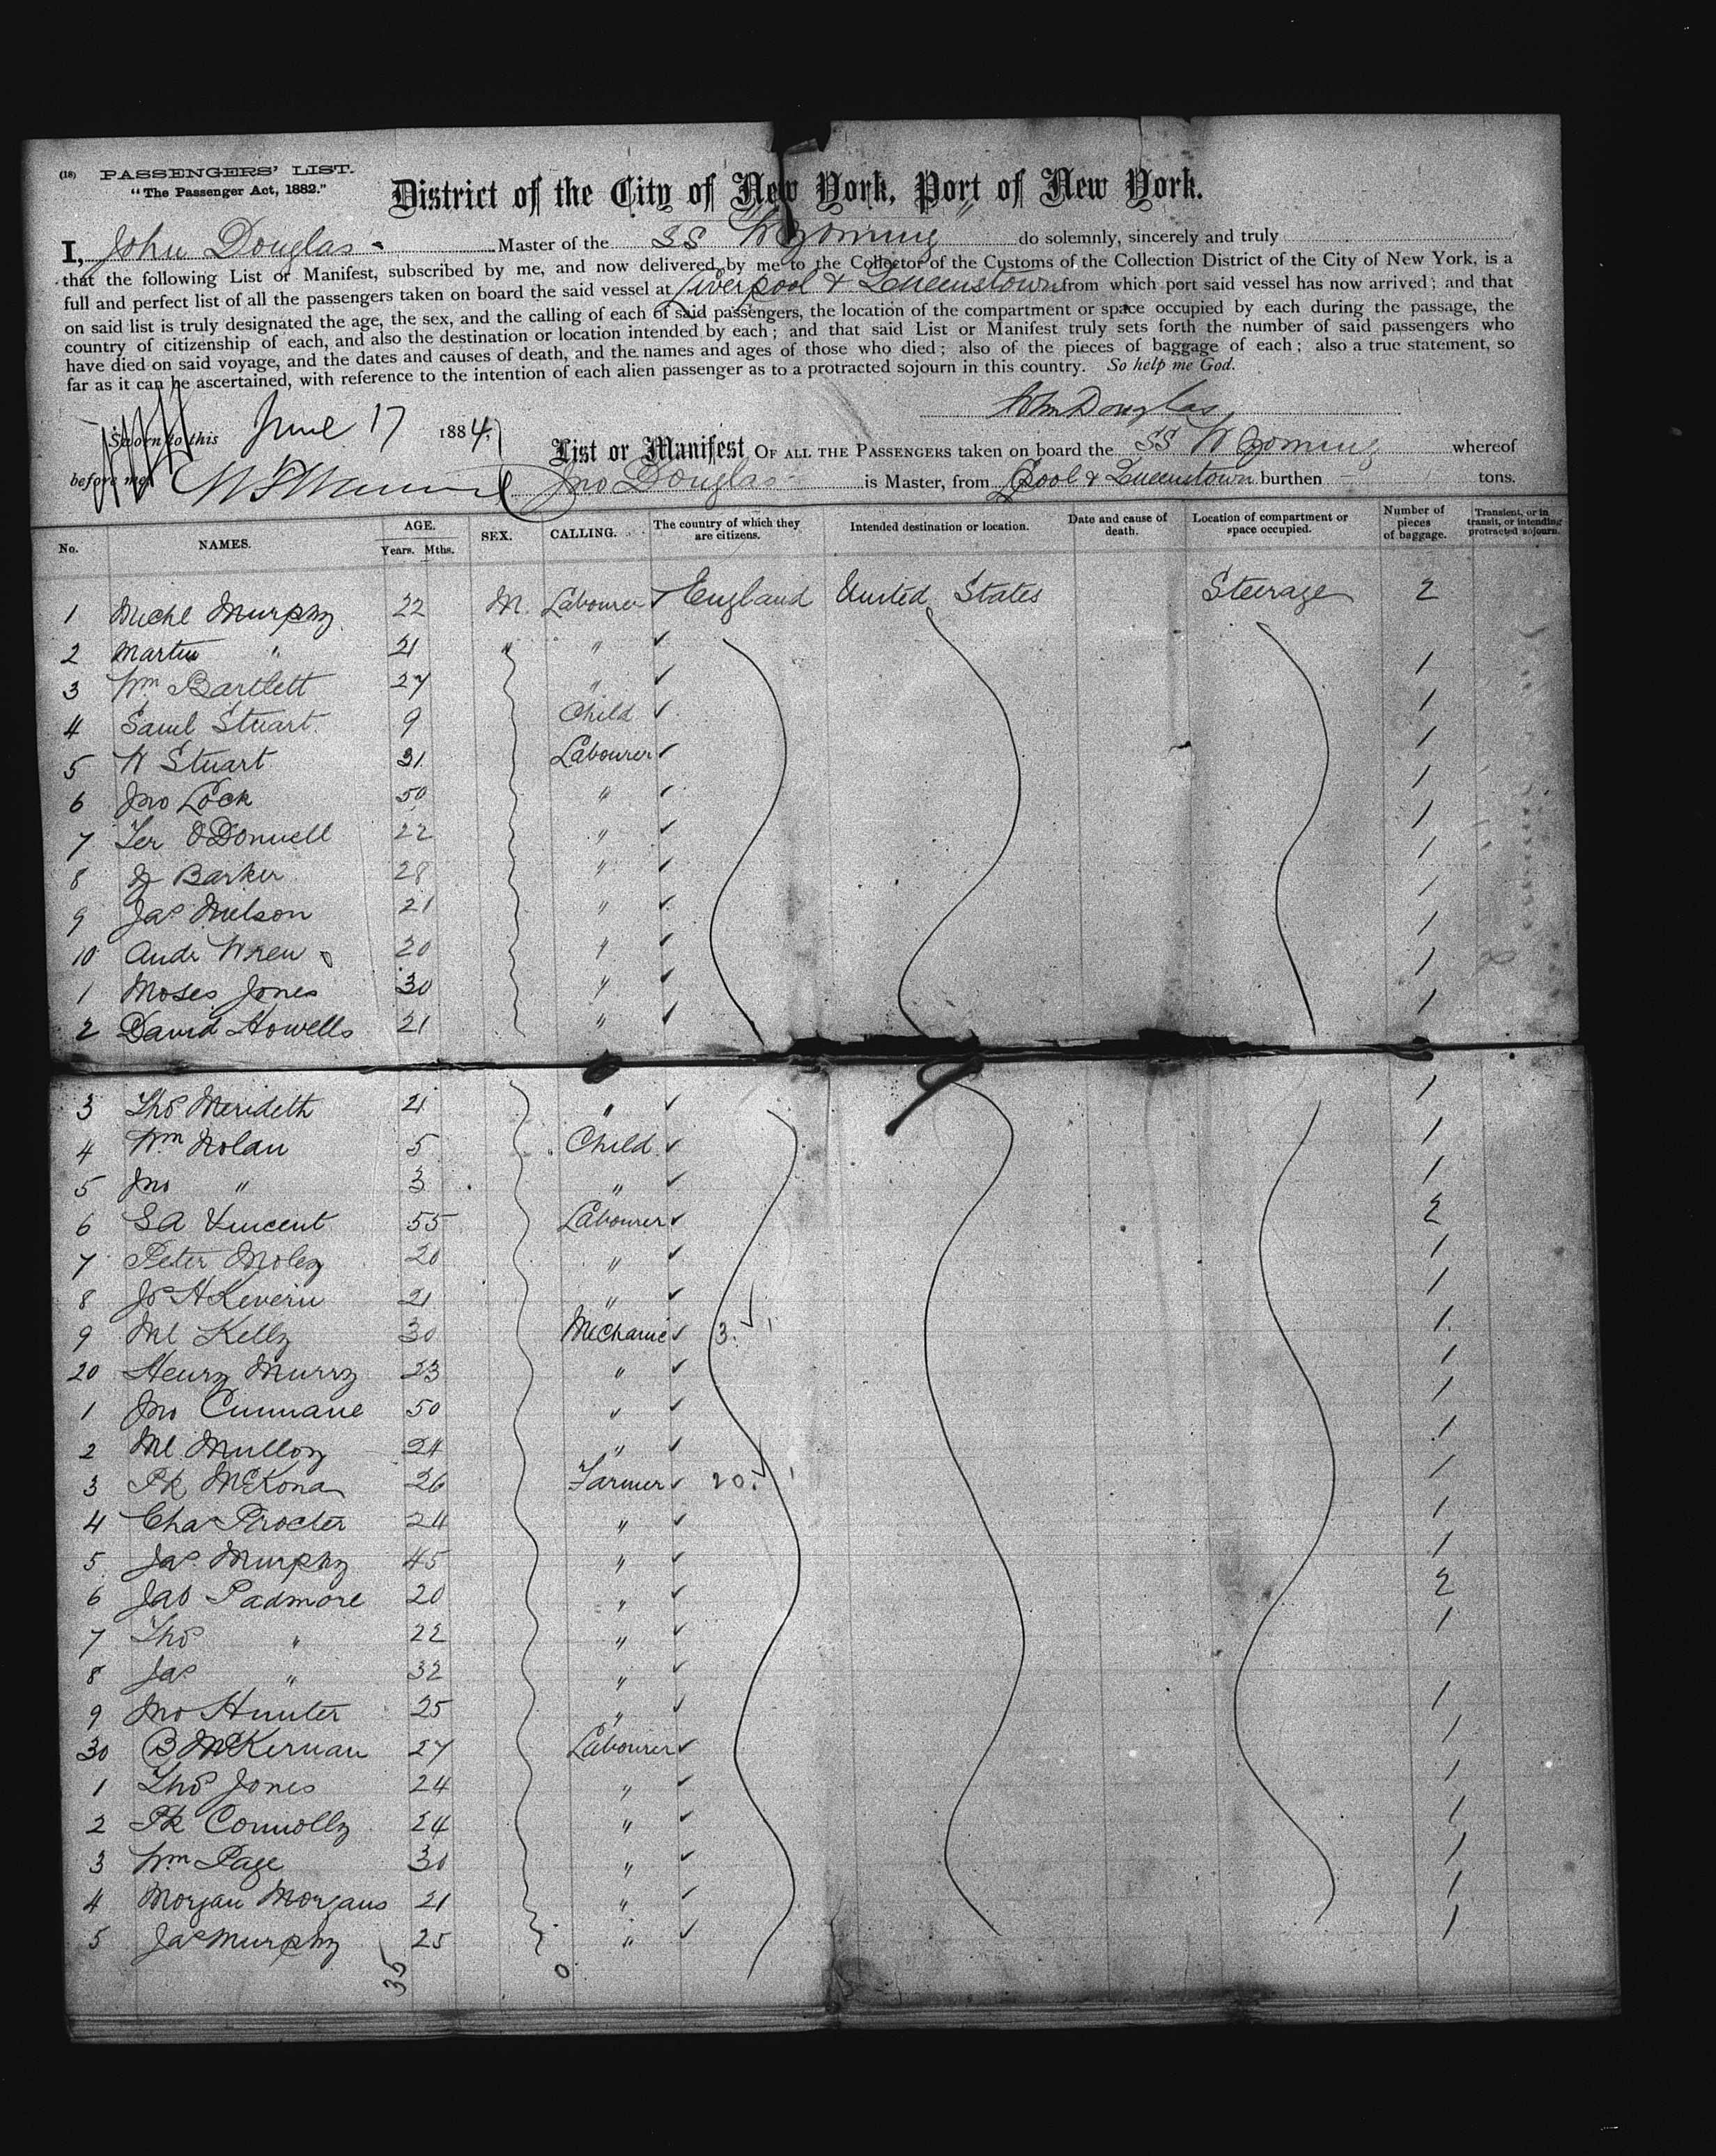 (18) PASSENGERS' LIST.
"The Passenger Act, 1882."
District of the City of New York, Port of New York.
I, John Douglas Master of the SS Wyoming do solemnly, sincerely and truly
that the following List or Manifest, subscribed by me, and now delivered by me to the Collector of the Customs of the Collection District of the City of New York, is a
full and perfect list of all the passengers taken on board the said vessel at Liverpool & Queenstown from which port said vessel has now arrived; and that
on said list is truly designated the age, the sex, and the calling of each of said passengers, the location of the compartment or space occupied by each during the passage, the
country of citizenship of each, and also the destination or location intended by each; and that said List or Manifest truly sets forth the number of said passengers who
have died on said voyage, and the dates and causes of death, and the names and ages of those who died; also of the pieces of baggage of each; also a true statement, so
far as it can be ascertained, with reference to the intention of each alien passenger as to a protracted sojourn in this country. So help me God.
John Douglas
Sworn to this June 17 1884,
before me
List or Manifest OF ALL THE PASSENGERS taken on board the SS Wyoming whereof
Jno Douglas is Master, from Lpool & Queenstown burthen tons.
No. NAMES. AGE. Years. Mths. SEX. CALLING. The country of which they are citizens. Intended destination or location. Date and cause of death. Location of compartment or space occupied. Number of pieces of baggage. Transient, or in transit, or intending protracted sojourn.
1 Michl Murphy 22 M. Labourer ✓ England United States Steerage 2
2 Martin " 21 " " ✓ 1
3 Wm Bartlett 27 " ✓ 1
4 Saml Stuart 9 Child ✓ 1
5 W Stuart 31 Labourer ✓ 1
6 Jno Lock 50 " ✓ 1
7 Ter O'Donnell 22 " ✓ 1
8 Barker 28 " ✓ 1
9 Jas Nelson 21 " ✓ 1
10 Andr Wren 20 " ✓ 1
1 Moses Jones 30 " ✓ 1
2 David Howells 21 " ✓ 1
3 Thos Merideth 21 " ✓ 1
4 Wm Nolan 5 Child ✓ 1
5 Jno " 3 " ✓ 1
6 S A Vincent 55 Labourer ✓ 2
7 Peter Moley 20 " ✓ 1
8 Js H Kevern 21 " ✓ 1
9 Ml Kelly 30 Mechanic ✓ 3. ✓ 1
20 Henry Murry 23 " ✓ 1
1 Jno Cunnane 50 " ✓ 1
2 Ml Mulloy 24 " ✓ 1
3 Pk McKona 26 Farmer ✓ 20. ✓ 1
4 Chas Procter 24 " ✓ 1
5 Jas Murphy 45 " ✓ 1
6 Jas Padmore 20 " ✓ 2
7 Thos " 22 " ✓ 1
8 Jas " 32 " ✓
9 Jno Hunter 25 " ✓ 1
30 B McKernan 27 Labourer ✓ 1
1 Thos Jones 24 " ✓ 1
2 Pk Connolly 24 " ✓ 1
3 Wm Page 30 " ✓ 1
4 Morgan Morgans 21 " ✓ 1
5 Jas Murphy 25 " ✓ 1
35 0